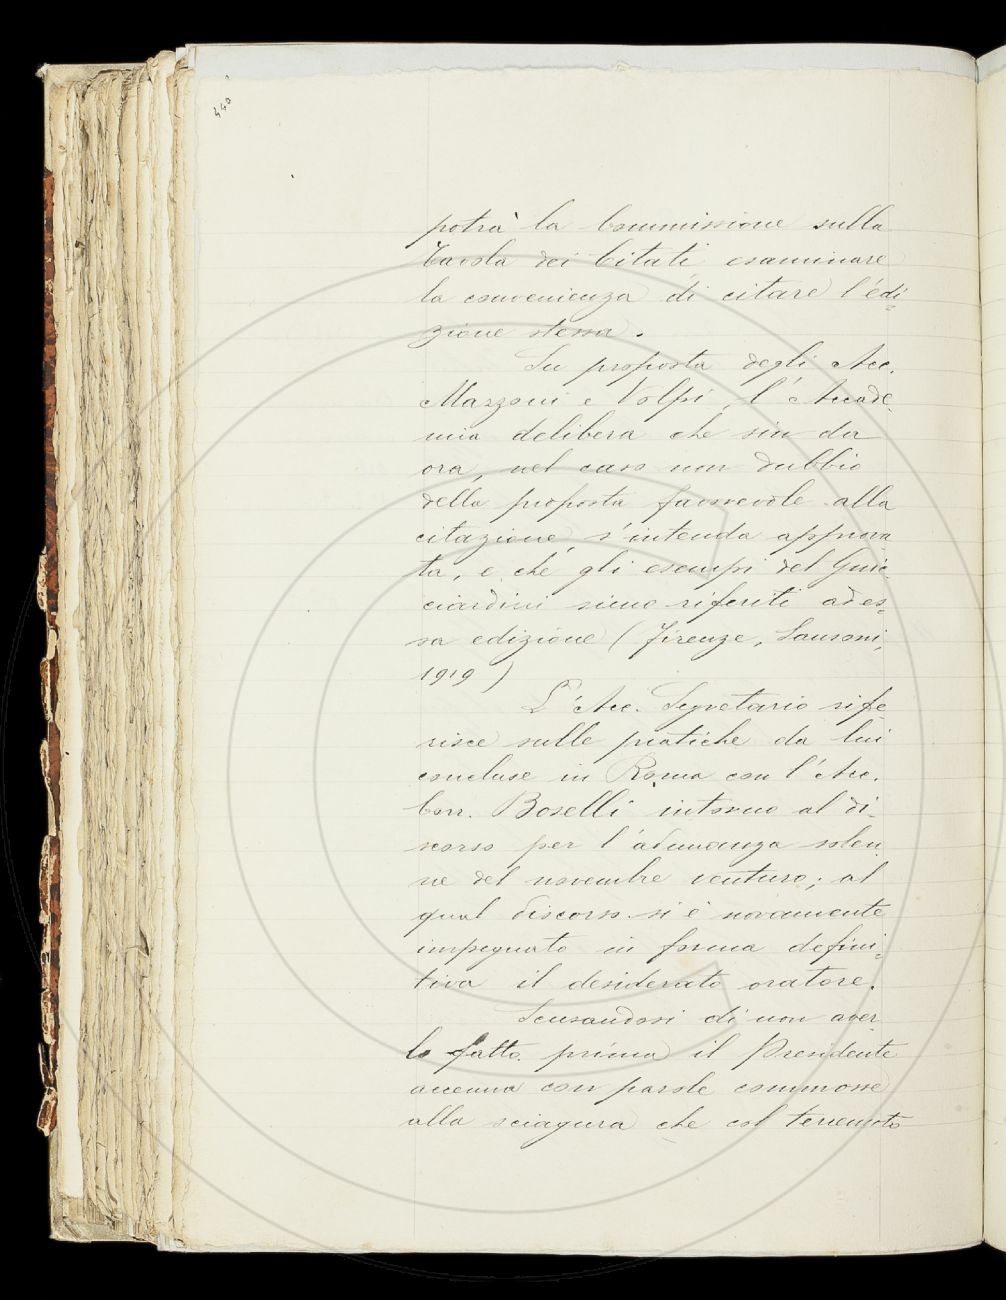 440
potrà la Commissione sulla
Tavola dei Citati esaminare
la convenienza di citare l'edi-
zione stessa.
Su proposta degli Acc.
Mazzoni e Volpi, l'Accade-
mia delibera che sin da
ora, nel caso non dubbio
della proposta favorevole alla
citazione s'intenda approva
ta, e che gli esempi del Guic-
ciardini sieno riferiti ad es-
sa edizione (Firenze, Sansoni,
1919)
L'Acc. Segretario rife
risce sulle pratiche da lui
concluse in Roma con l'Acc.
Corr. Boselli intorno al di-
scorso per l'adunanza solen
ne del novembre venturo; al
qual discorso si è novamente
impegnato in forma defini-
tiva il desiderato oratore.
Scusandosi di non aver
lo fatto prima il Presidente
accenna con parole commosse
alla sciagura che col terremoto